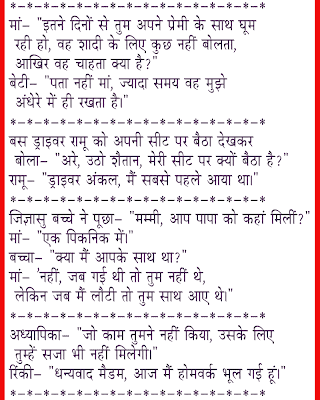 *-*-*-*-*-*-*-*-*-*-*-*-*-*-*-*-*-*
मां– "इतने दिनों से तुम अपने प्रेमी के साथ घूम
रही हो, वह शादी के लिए कुछ नहीं बोलता,
आखिर वह चाहता क्या है?"
बेटी– "पता नहीं मां, ज्यादा समय वह मुझे
अंधेरे में ही रखता है।"
*-*-*-*-*-*-*-*-*-*-*-*-*-*-*-*-*-*
बस ड्राइवर रामू को अपनी सीट पर बैठा देखकर
बोला– "अरे, उठो शैतान, मेरी सीट पर क्यों बैठा है?"
रामू– "ड्राइवर अंकल, मैं सबसे पहले आया था।"
*-*-*-*-*-*-*-*-*-*-*-*-*-*-*-*-*-*
जिज्ञासु बच्चे ने पूछा– "मम्मी, आप पापा को कहां मिलीं?"
मां– "एक पिकनिक में।"
बच्चा– "क्या मैं आपके साथ था?"
मां– 'नहीं, जब गई थी तो तुम नहीं थे,
लेकिन जब मैं लौटी तो तुम साथ आए थे।"
*-*-*-*-*-*-*-*-*-*-*-*-*-*-*-*-*-*
अध्यापिका– "जो काम तुमने नहीं किया, उसके लिए
तुम्हें सजा भी नहीं मिलेगी।"
रिंकी– "धन्यवाद मैडम, आज मैं होमवर्क भूल गई हूं।"
*-*-*-*-*-*-*-*-*-*-*-*-*-*-*-*-*-*